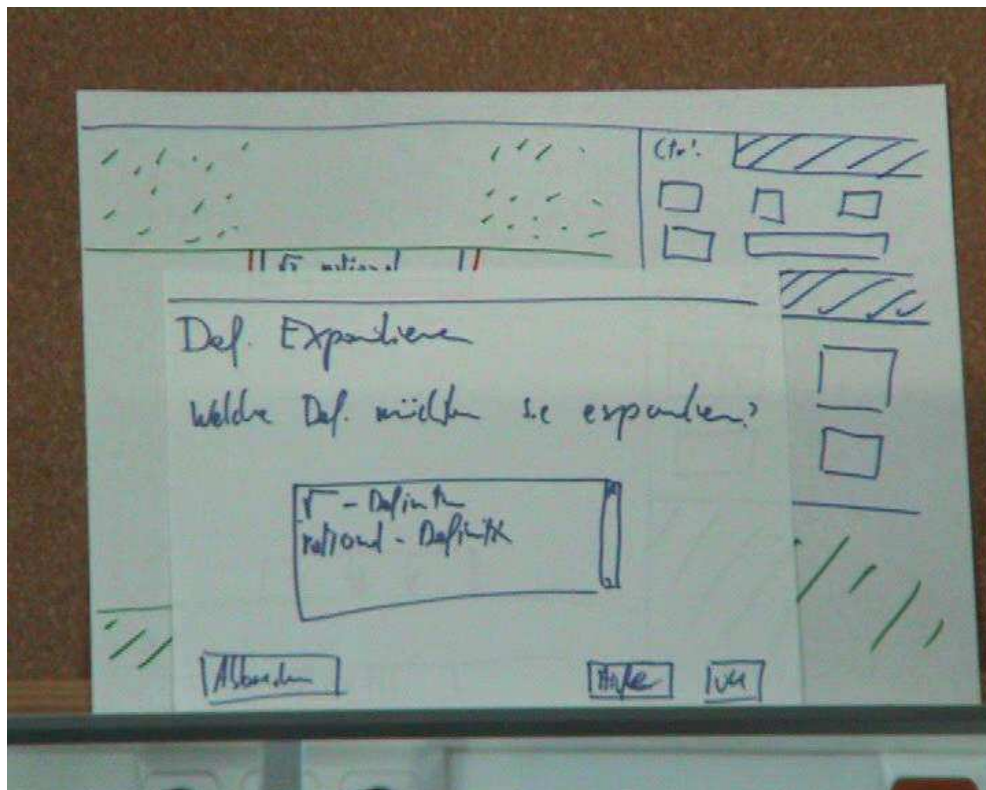 Ctrl.
√2 rational
Def. Expandieren
Welche Def. möchten Sie expandieren?
√ - Definition
rational - Definition
Abbrechen